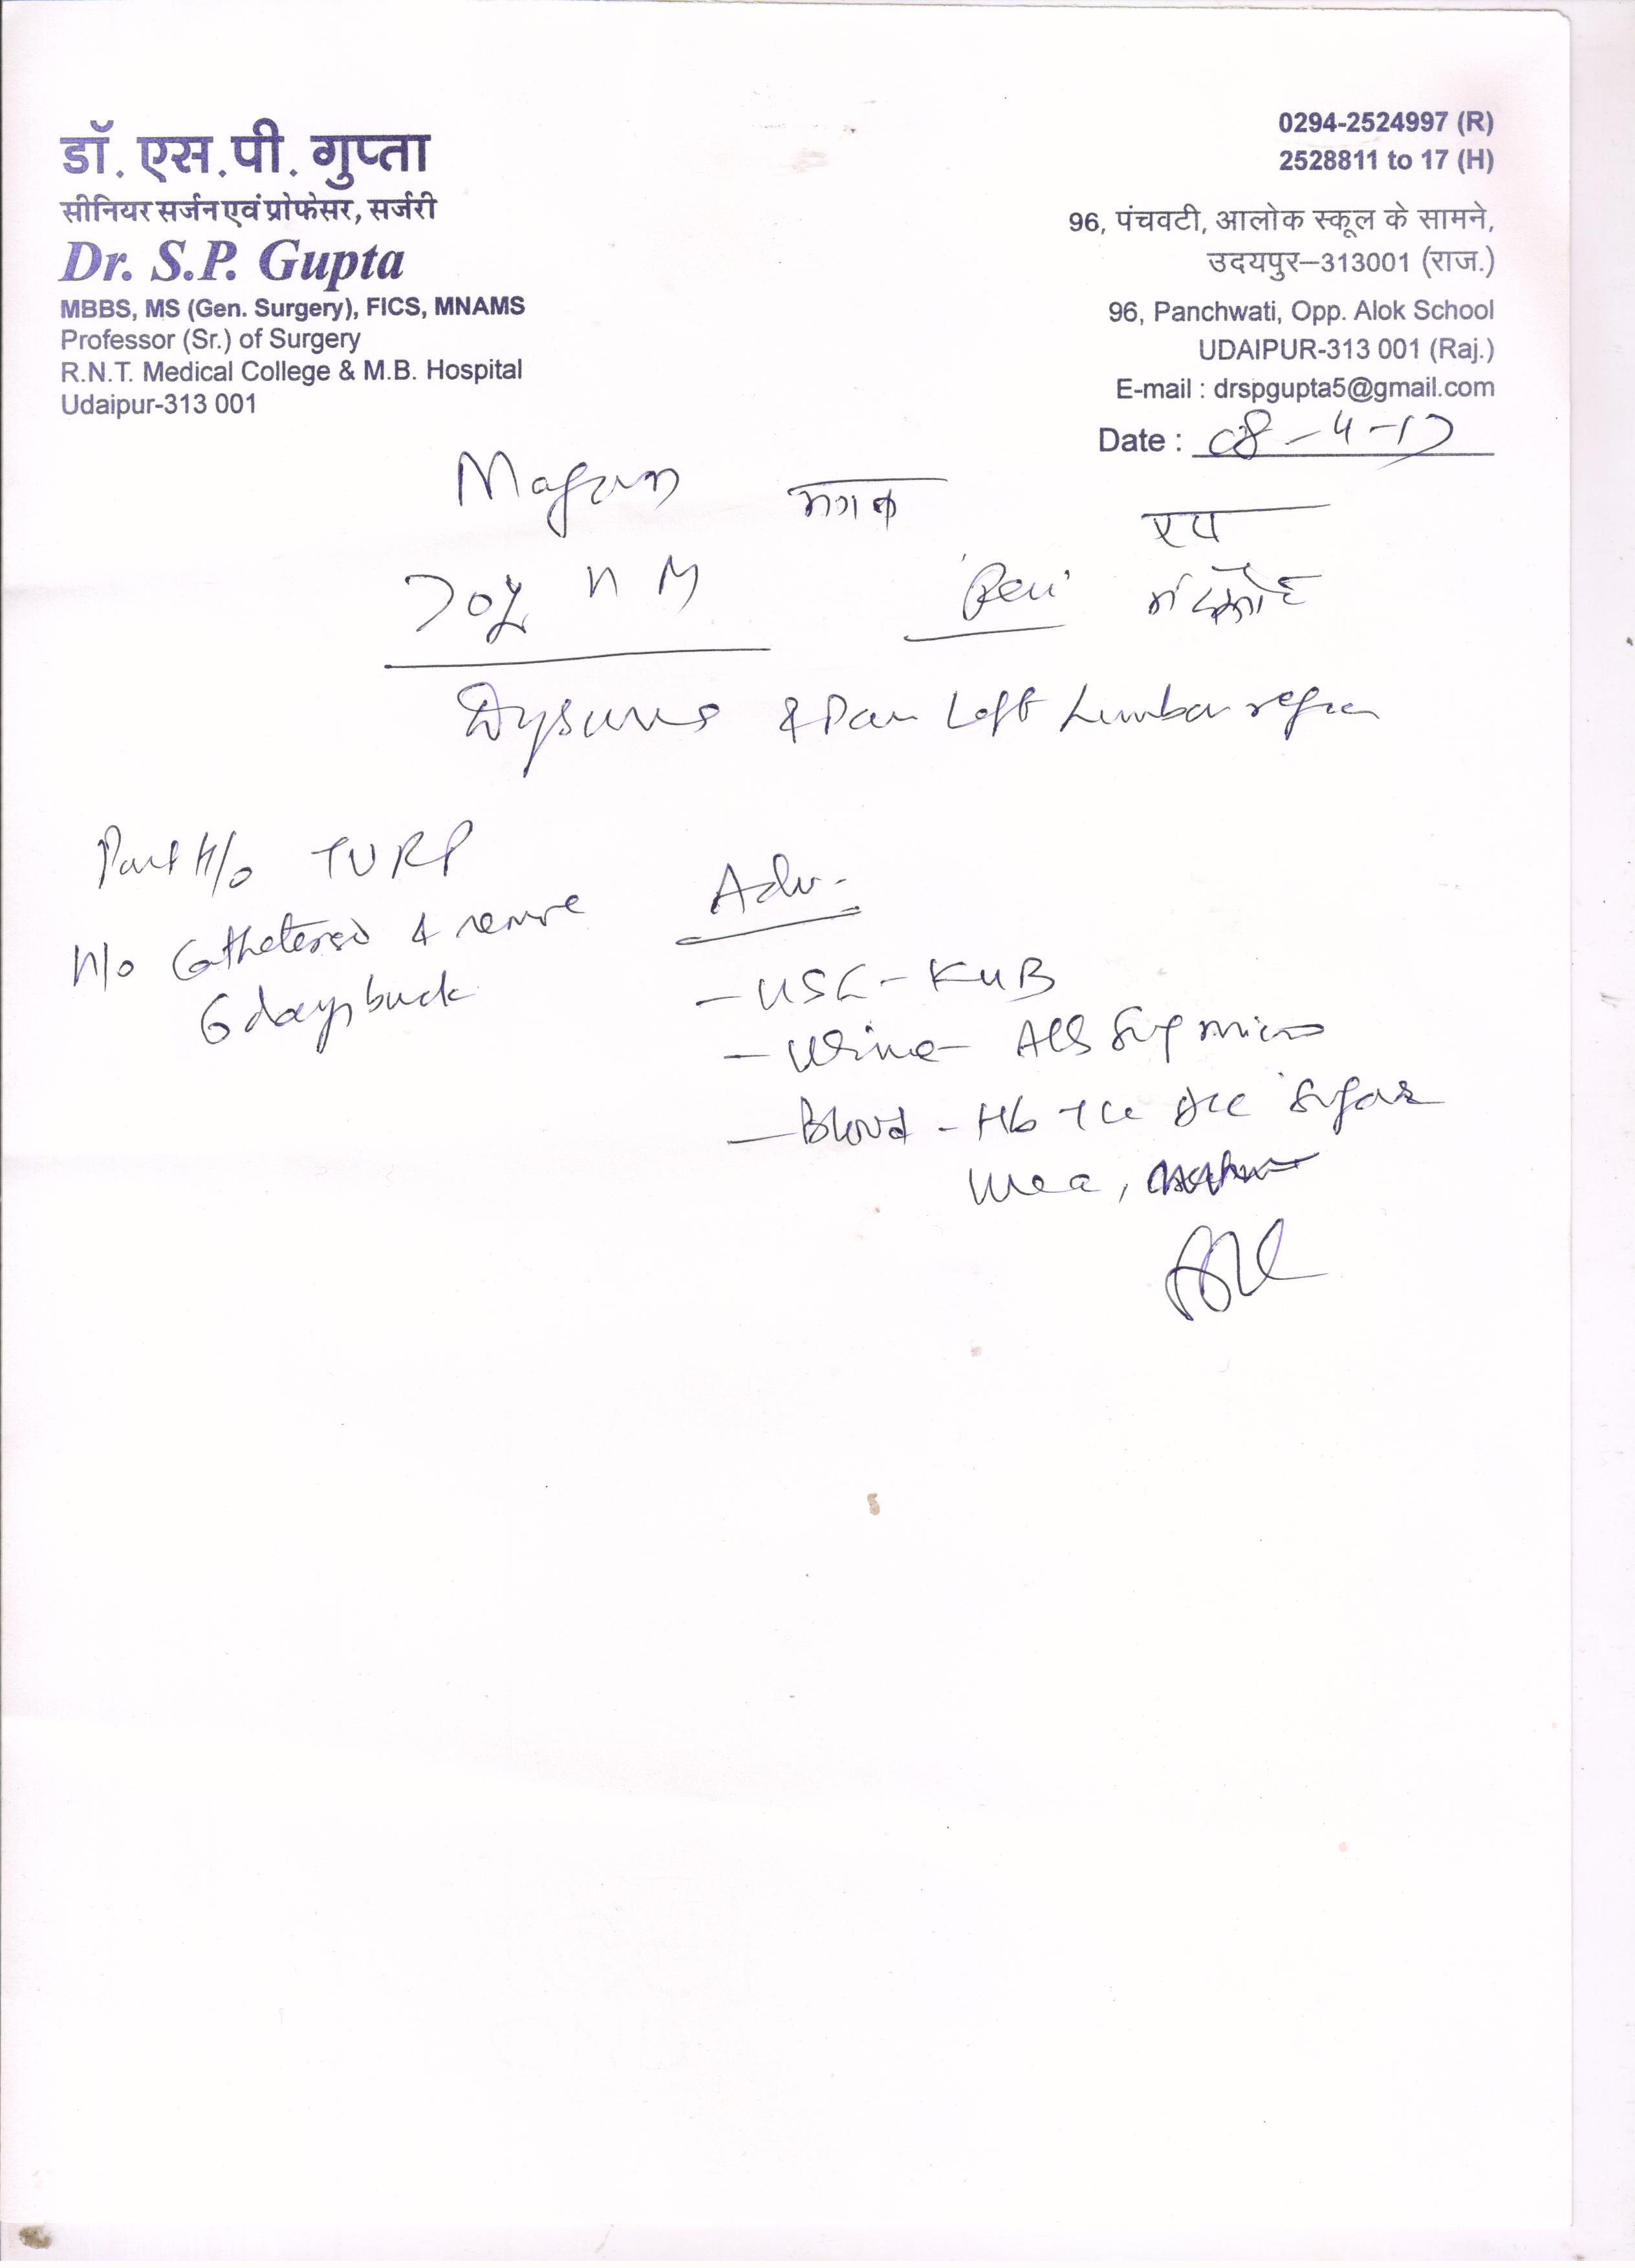 डॉ. एस.पी. गुप्ता
सीनियर सर्जन एवं प्रोफेसर, सर्जरी
Dr. S.P. Gupta
MBBS, MS (Gen. Surgery), FICS, MNAMS
Professor (Sr.) of Surgery
R.N.T. Medical College & M.B. Hospital
Udaipur-313 001
0294-2524997 (R)
2528811 to 17 (H)
96, पंचवटी, आलोक स्कूल के सामने,
उदयपुर–313001 (राज.)
96, Panchwati, Opp. Alok School
UDAIPUR-313 001 (Raj.)
E-mail : drspgupta5@gmail.com
Date : 08-4-17
Magan
70y M
& Pain Left Lumbar region
Past H/o TURP
H/o Catheterised &
6 days back
Adv.
- USG - KUB
- Urine - Alb Sug micro
- Blood - Hb TLC DLC Sugar
Urea,